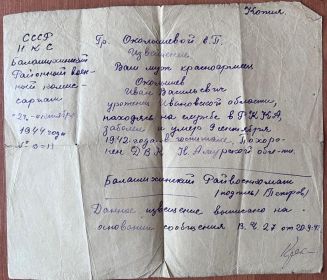 Копия
СССР
НКС
Балашихинский
Районный воен-
ный комис-
сариат
1944 года
Гр. Околышевой
Извещение
Ваш муж красноармеец
Околышев
Иван Васильевич
уроженец Ивановской области,
находясь на службе в Р.К.К.А,
заболел и умер 9 сентября
1942 года в госпитале. Похоро-
нен Д.В.К. Н Амурской обл-ти
Балашихинский Райвоенкомат
(подпись) (Петров)
Данное извещение выписано на
основании сообщения В.Ч. 27 от